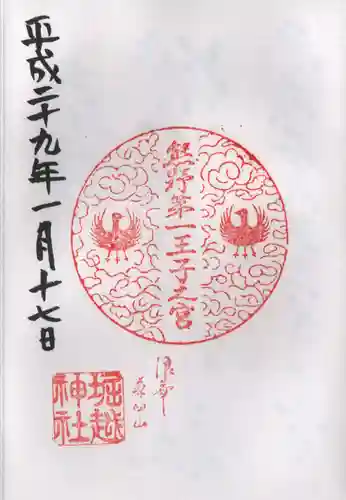 平成二十九年一月十七日
熊野第一王子之宮
堀越
神社